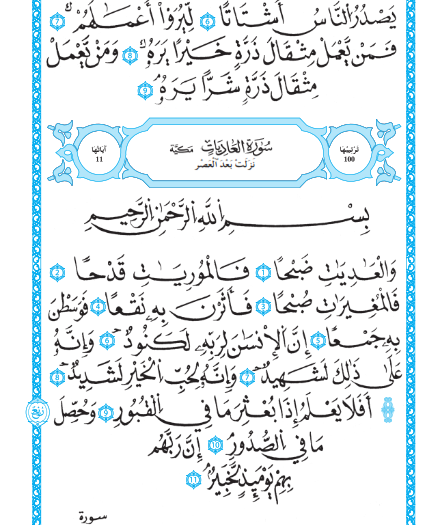 يَصْدُرُ النَّاسُ أَشْتَاتًا ٦ لِّيُرَوْا۟ أَعْمَٰلَهُمْ ٧
فَمَنْ يَّعْمَلْ مِثْقَالَ ذَرَّةٍ خَيْرًا يَرَهُۥ ٨ وَمَنْ يَّعْمَلْ
مِثْقَالَ ذَرَّةٍ شَرًّا يَرَهُۥ ٩
ترتيبها 100
سُورَةُ الْعَادِيَاتِ مَكِّيَّة
نَزَلَتْ بَعْدَ الْعَصْرِ
آياتها 11
بِسْمِ اللَّهِ الرَّحْمَٰنِ الرَّحِيمِ
وَالْعَٰدِيَٰتِ ضَبْحًا ١ فَالْمُورِيَٰتِ قَدْحًا ٢
فَالْمُغِيرَٰتِ صُبْحًا ٣ فَأَثَرْنَ بِهِۦ نَقْعًا ٤ فَوَسَطْنَ
بِهِۦ جَمْعًا ٥ إِنَّ الْإِنسَٰنَ لِرَبِّهِۦ لَكَنُودٌ ٦ وَإِنَّهُۥ
عَلَىٰ ذَٰلِكَ لَشَهِيدٌ ٧ وَإِنَّهُۥ لِحُبِّ الْخَيْرِ لَشَدِيدٌ ٨
أَفَلَا يَعْلَمُ إِذَا بُعْثِرَ مَا فِي الْقُبُورِ ٩ وَحُصِّلَ
مَا فِي الصُّدُورِ ١٠ إِنَّ رَبَّهُم
بِهِمْ يَوْمَئِذٍ لَّخَبِيرٌ ١١
سورة